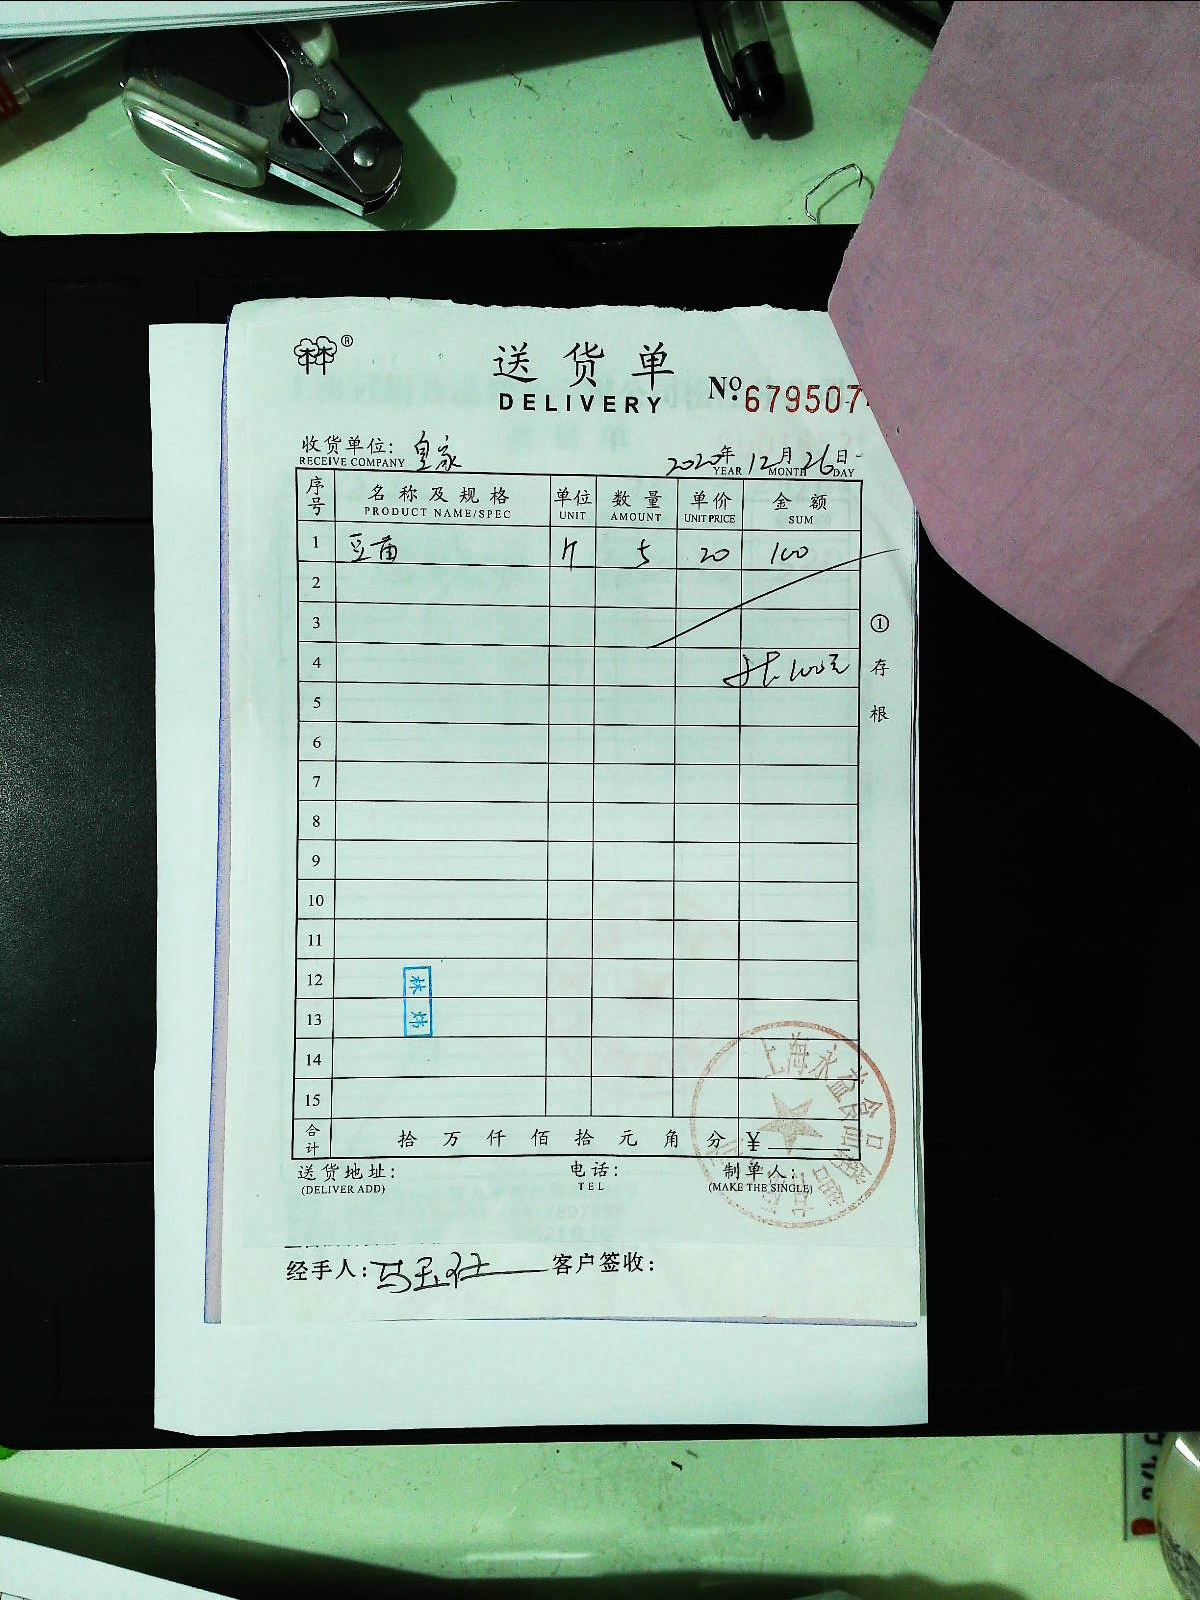 林林®
送货单
DELIVERY
No. 679507
收货单位: 皇家 2020年 12月 26日
RECEIVE COMPANY YEAR MONTH DAY
序号 名称及规格 单位 数量 单价 金额
PRODUCT NAME/SPEC UNIT AMOUNT UNIT PRICE SUM
1 豆苗 斤 5 20 100
2
3
4 共100元
5
6
7
8
9
10
11
12
13
14
15
①存根
林炜
合计 拾 万 仟 佰 拾 元 角 分 ¥
送货地址: 电话: 制单人:
(DELIVER ADD) TEL (MAKE THE SINGLE)
上海永益食品
经手人: 客户签收: